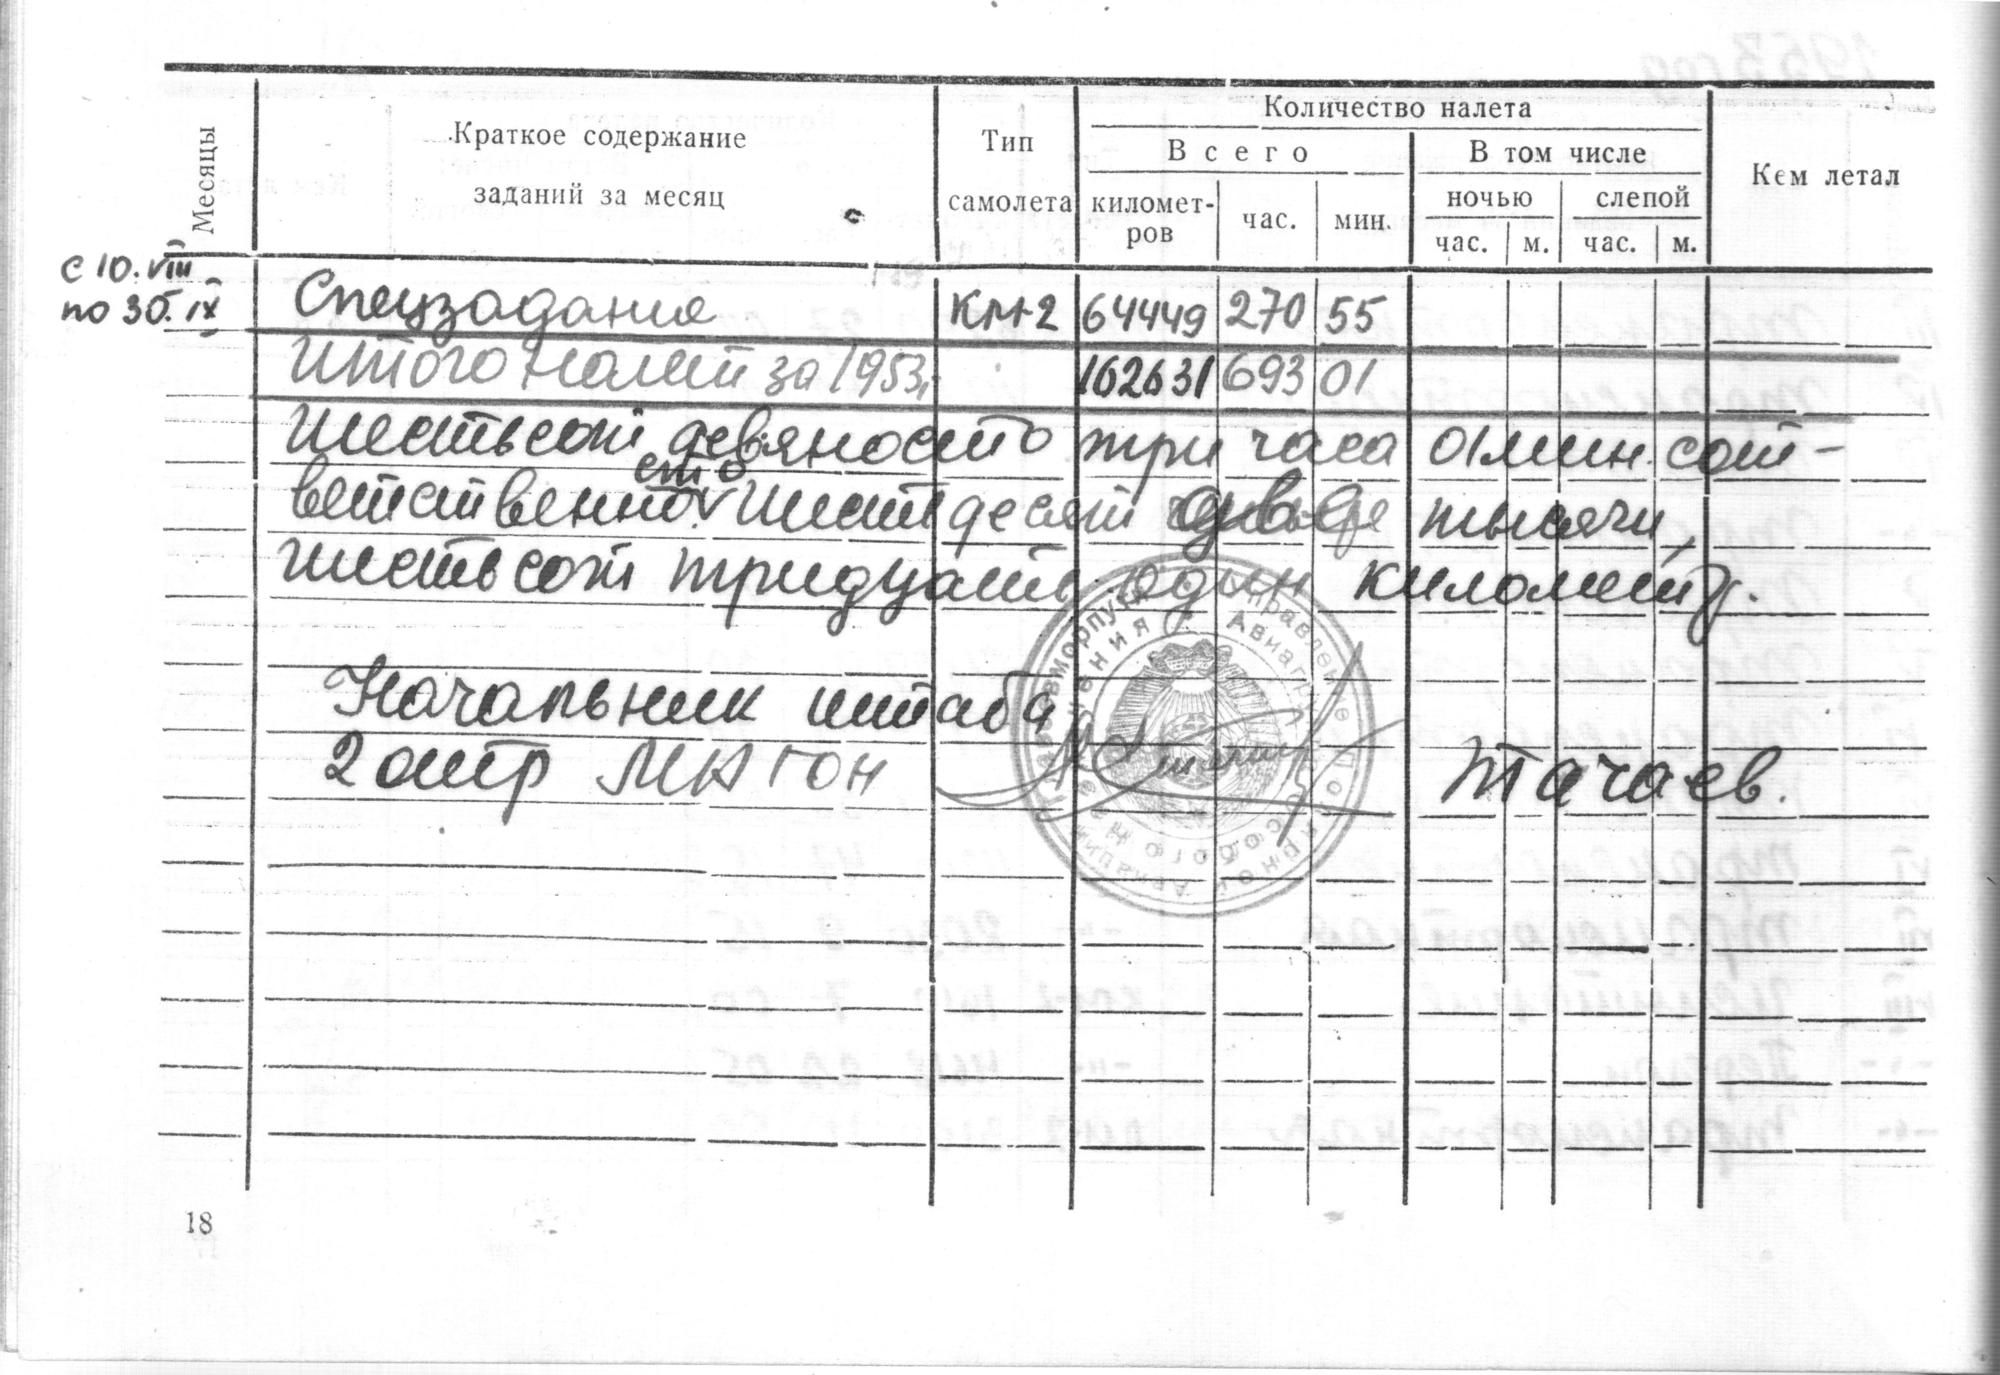 Месяцы
Краткое содержание
заданий за месяц
Тип
самолета
Количество налета
Всего
В том числе
километ-
ров
час.
мин.
ночью
слепой
час.
м.
час.
м.
Кем летал
с 10.VIII
по 30.IX
Спецзадания КМ-2 64449 270 55
Итого налет за 1953. 162631 693 01
Шестьсот девяносто три часа 01 мин. соот-
ветственно сто шестьдесят две тысячи,
шестьсот тридцать один километр.
Начальник штаба
2 отр МАГОН
Тачаев.
Управление Полярной Авиации Главсевморпути
18